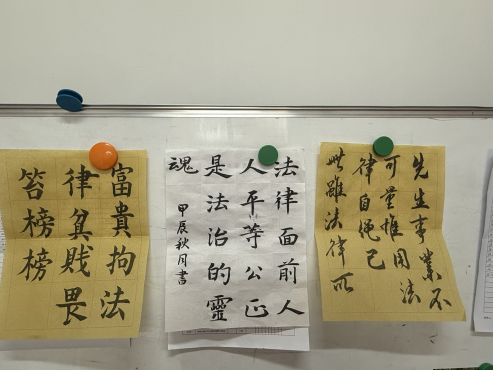 先生事業不
可量惟用法
律自绳己
此雖法律所
法律面前人
人平等公正
是法治的靈
魂
甲辰秋月書
富貴拘法
律貧賤畏
笞榜榜